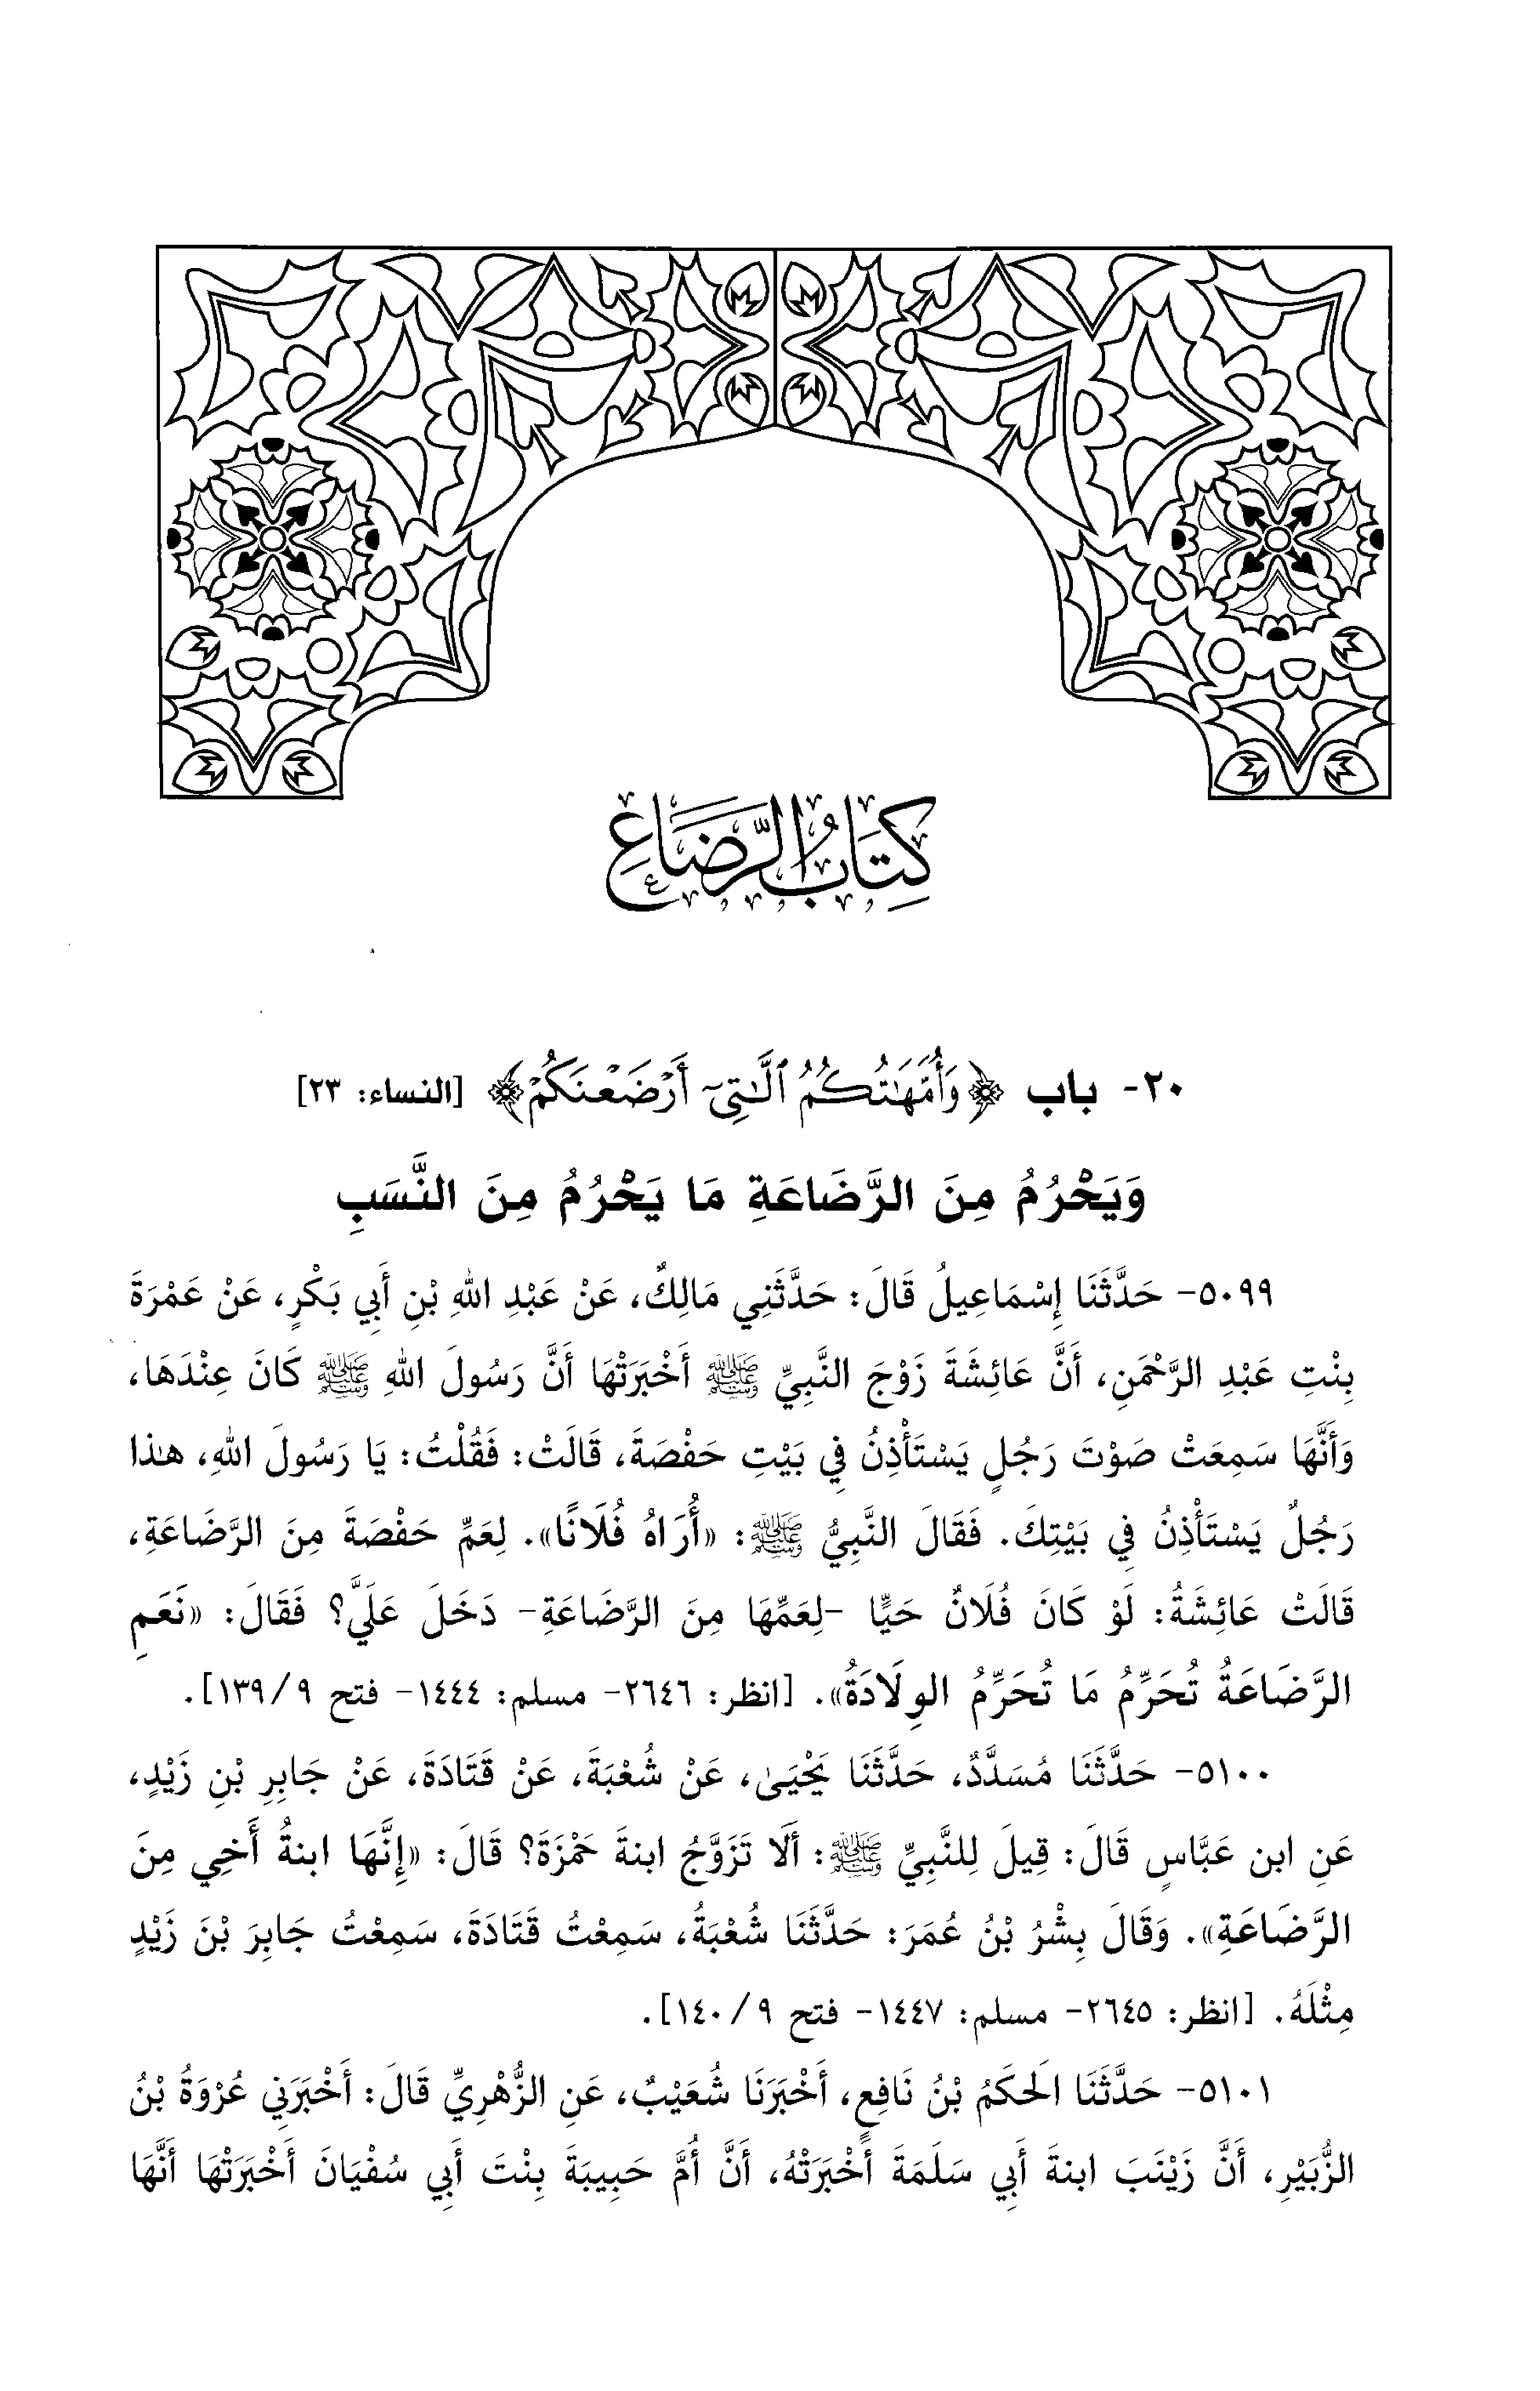 كِتَابُ الرَّضَاعِ
٢٠- باب ﴿وَأُمَّهَٰتُكُمُ ٱلَّٰتِىٓ أَرْضَعْنَكُمْ﴾ [النساء: ٢٣]
وَيَحْرُمُ مِنَ الرَّضَاعَةِ مَا يَحْرُمُ مِنَ النَّسَبِ
٥٠٩٩- حَدَّثَنَا إِسْمَاعِيلُ قَالَ: حَدَّثَنِي مَالِكٌ، عَنْ عَبْدِ اللهِ بْنِ أَبِي بَكْرٍ، عَنْ عَمْرَةَ
بِنْتِ عَبْدِ الرَّحْمَنِ، أَنَّ عَائِشَةَ زَوْجَ النَّبِيِّ ﷺ أَخْبَرَتْهَا أَنَّ رَسُولَ اللهِ ﷺ كَانَ عِنْدَهَا،
وَأَنَّهَا سَمِعَتْ صَوْتَ رَجُلٍ يَسْتَأْذِنُ فِي بَيْتِ حَفْصَةَ، قَالَتْ: فَقُلْتُ: يَا رَسُولَ اللهِ، هذا
رَجُلٌ يَسْتَأْذِنُ فِي بَيْتِكَ. فَقَالَ النَّبِيُّ ﷺ: «أُرَاهُ فُلَانًا». لِعَمِّ حَفْصَةَ مِنَ الرَّضَاعَةِ،
قَالَتْ عَائِشَةُ: لَوْ كَانَ فُلَانٌ حَيًّا -لِعَمِّهَا مِنَ الرَّضَاعَةِ- دَخَلَ عَلَيَّ؟ فَقَالَ: «نَعَمِ
الرَّضَاعَةُ تُحَرِّمُ مَا تُحَرِّمُ الوِلَادَةُ». [انظر: ٢٦٤٦- مسلم: ١٤٤٤- فتح ٩/ ١٣٩].
٥١٠٠- حَدَّثَنَا مُسَدَّدٌ، حَدَّثَنَا يَحْيَىٰ، عَنْ شُعْبَةَ، عَنْ قَتَادَةَ، عَنْ جَابِرِ بْنِ زَيْدٍ،
عَنِ ابن عَبَّاسٍ قَالَ: قِيلَ لِلنَّبِيِّ ﷺ: أَلَا تَزَوَّجُ ابنةَ حَمْزَةَ؟ قَالَ: «إِنَّهَا ابنةُ أَخِي مِنَ
الرَّضَاعَةِ». وَقَالَ بِشْرُ بْنُ عُمَرَ: حَدَّثَنَا شُعْبَةُ، سَمِعْتُ قَتَادَةَ، سَمِعْتُ جَابِرَ بْنَ زَيْدٍ
مِثْلَهُ. [انظر: ٢٦٤٥- مسلم: ١٤٤٧- فتح ٩/ ١٤٠].
٥١٠١- حَدَّثَنَا الَحكَمُ بْنُ نَافِعٍ، أَخْبَرَنَا شُعَيْبٌ، عَنِ الزُّهْرِيِّ قَالَ: أَخْبَرَنِي عُرْوَةُ بْنُ
الزُّبَيْرِ، أَنَّ زَيْنَبَ ابنةَ أَبِي سَلَمَةَ أَخْبَرَتْهُ، أَنَّ أُمَّ حَبِيبَةَ بِنْتَ أَبِي سُفْيَانَ أَخْبَرَتْهَا أَنَّهَا